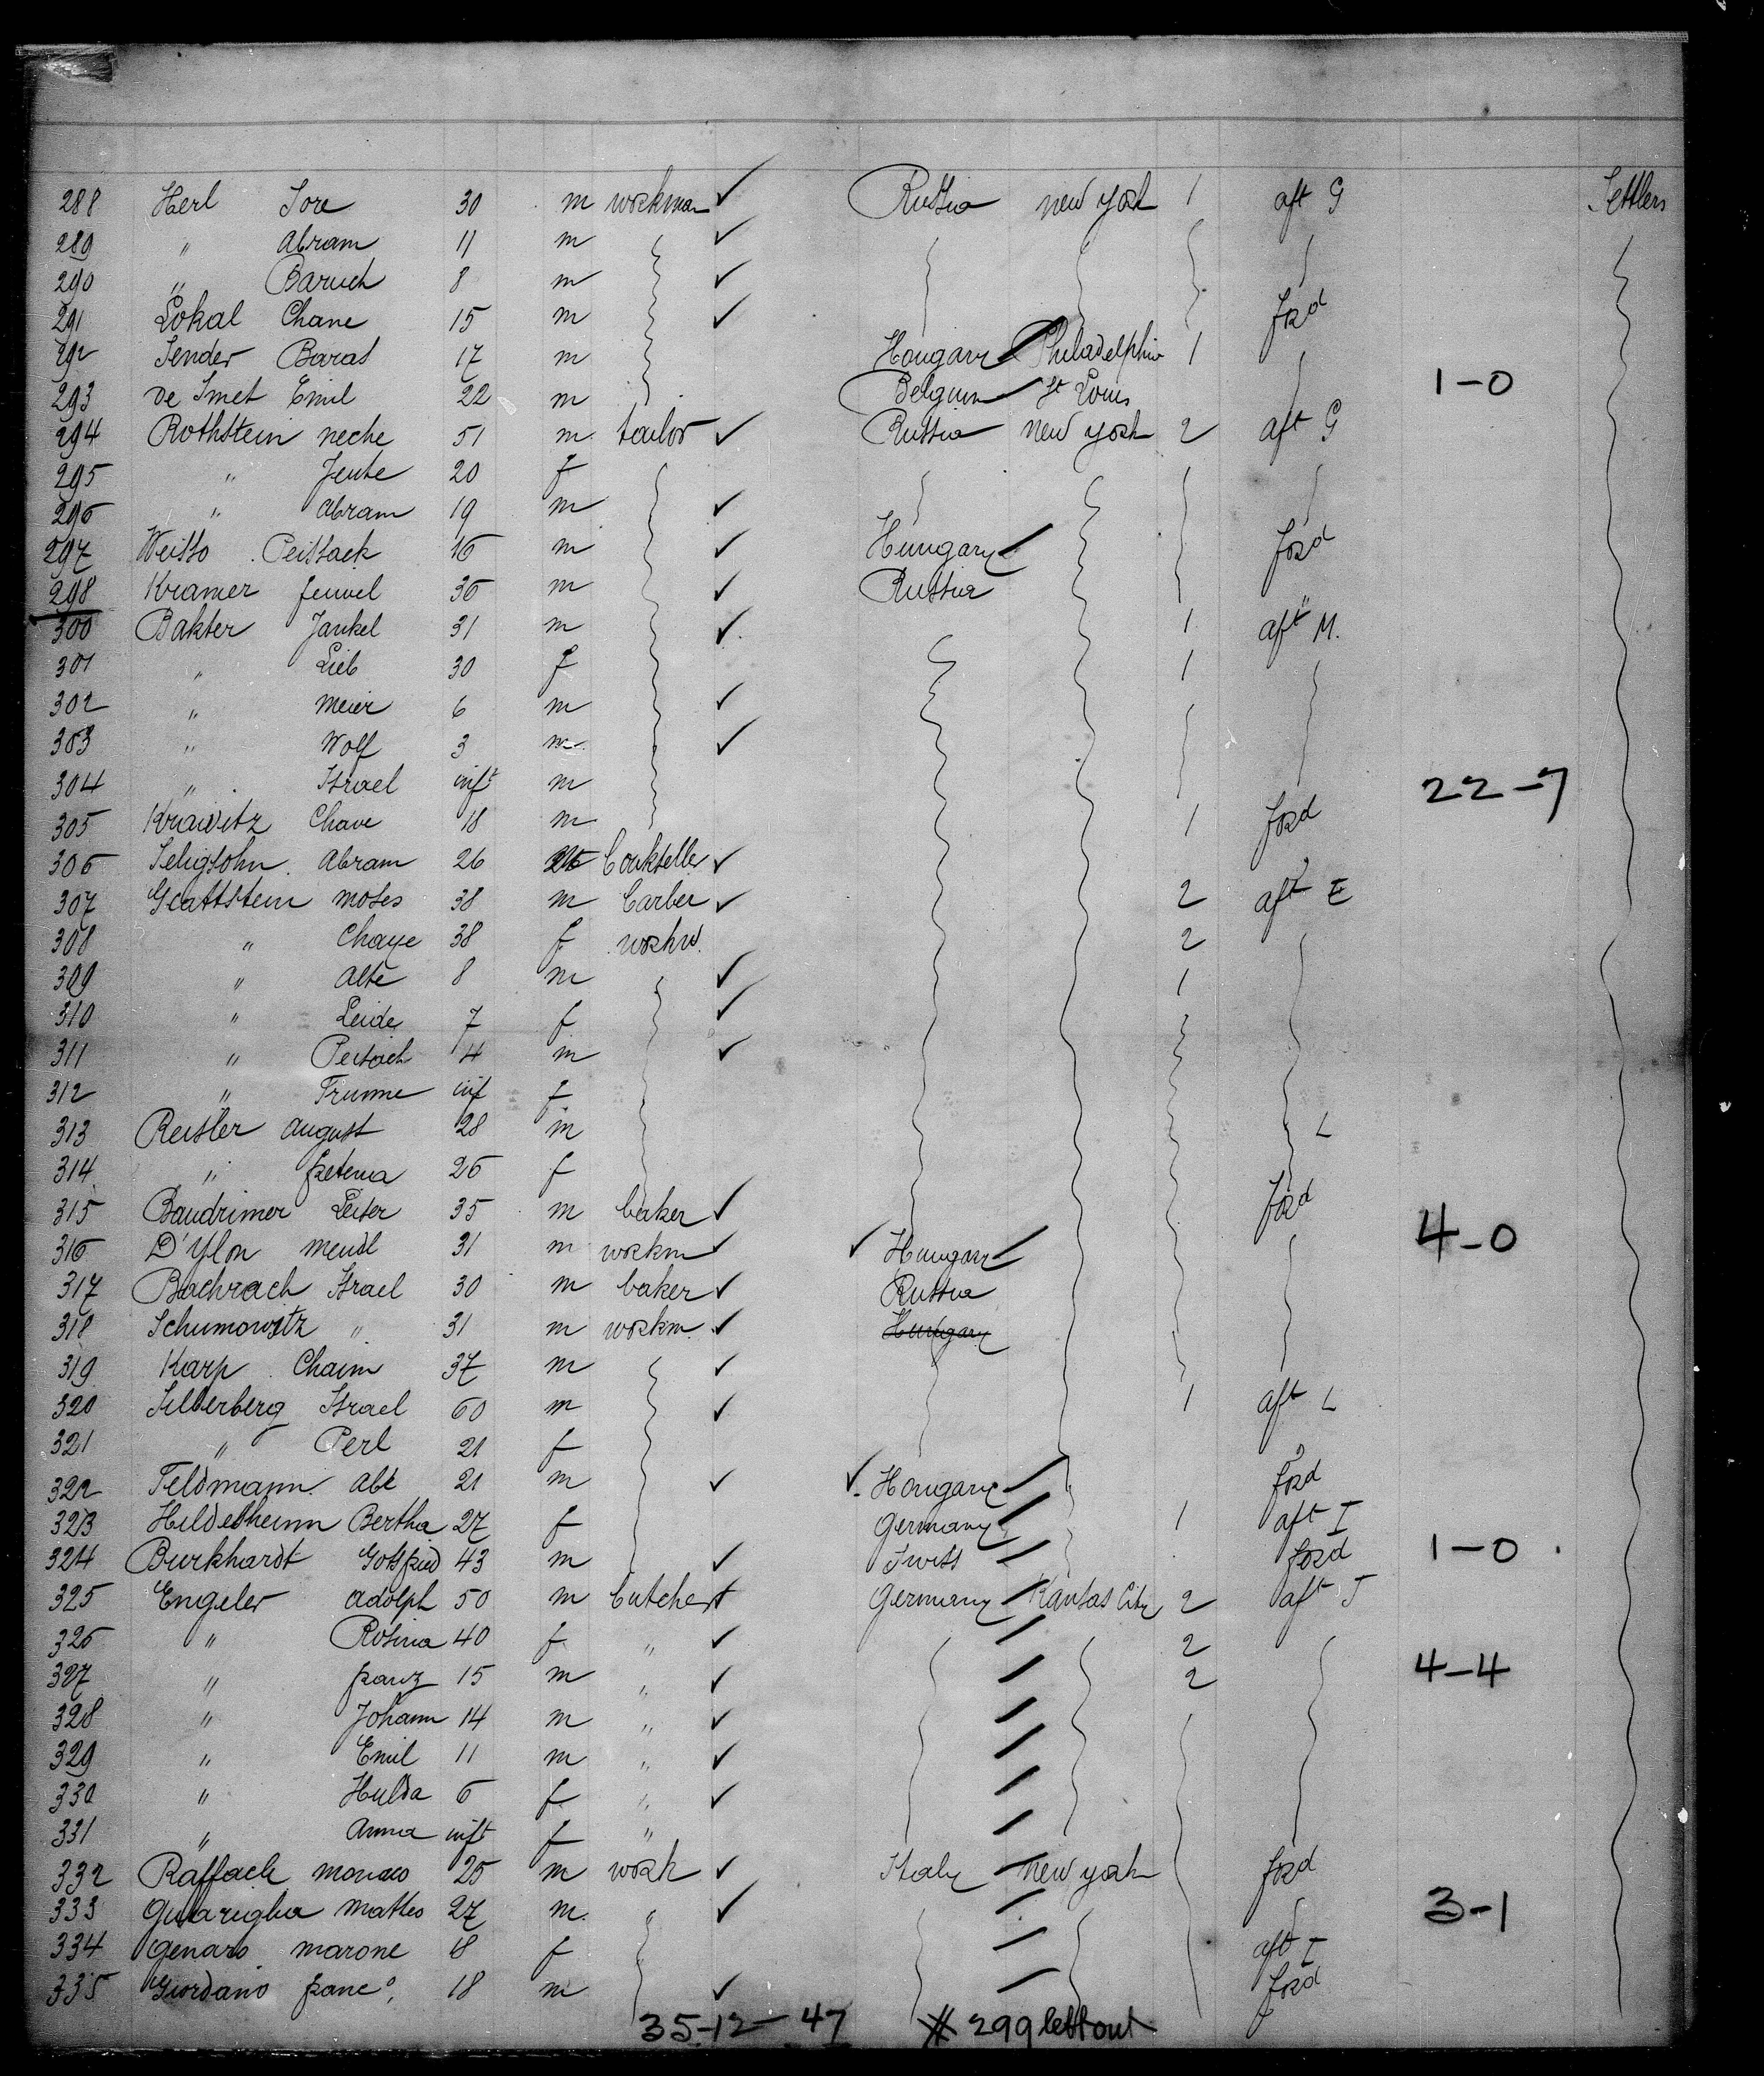 288 Herl Sore 30 m workman ✓ Russia new york 1 aft G Settlers
289 " Abram 11 m ✓
290 " Baruch 8 m ✓
291 Lokal Chane 15 m ✓ ford
292 Sender Baras 17 m Hongary Philadelphia 1
293 de Smet Emil 22 m Belgium St Louis 1-0
294 Rothstein neche 51 m tailor ✓ Russia new york 2 aft G
295 " Jente 20 f
296 " Abram 19 m ✓
297 Weisso Peissack 16 m ✓ Hungary ford
298 Kramer feiwel 36 m ✓ Russia "
300 Bakter Jankel 31 m ✓ 1 aft M.
301 " Lieb 30 f 1
302 " meier 6 m ✓
303 " Wolf 3 m ✓
304 " Israel inft m 22-7
305 Krawitz Chave 18 m 1 ford
306 Seligsohn Abram 26 m ✓
307 Glattstein moses 38 m barber ✓ 2 aft E
308 " Chaye 38 f workw. 2
309 " Alte 8 m ✓ 1
310 " Leide 7 f ✓
311 " Peisach 4 m ✓
312 " Frume inf f
313 Reisler august 28 m L
314 " 26 f
315 Baudrimer Leiser 35 m baker ✓ ford
316 D'Ylon mendl 31 m workm ✓ ✓ Hungary 4-0
317 Bachrach Israel 30 m baker ✓ Russia
318 Schumowitz " 31 m workm. ✓ Hungary
319 Karp Chaim 37 m ✓
320 Silberberg Israel 60 m ✓ 1 aft L
321 " Perl 21 f
322 Feldmann Abe 21 m ✓ ✓ Hongary ford
323 Hildesheimn Bertha 27 f Germany 1 aft I
324 Burkhardt Gottfried 43 m ✓ Swiss ford 1-0
325 Engeler Adolph 50 m butcher Germany Kansas City 2 aft J
326 " Rosina 40 f " ✓ 2
327 " franz 15 m " ✓ 2 4-4
328 " Johann 14 m " ✓
329 " Emil 11 m " ✓
330 " Hulda 6 f " ✓
331 " Anna inft f "
332 Raffaele monaco 25 m work ✓ Italy new york ford
333 Guariglia Matteo 27 m " ✓ 3-1
334 genaro marone 18 f aft I
335 Giordano franc°, 18 m ✓ ford
35-12-47 # 299 left out